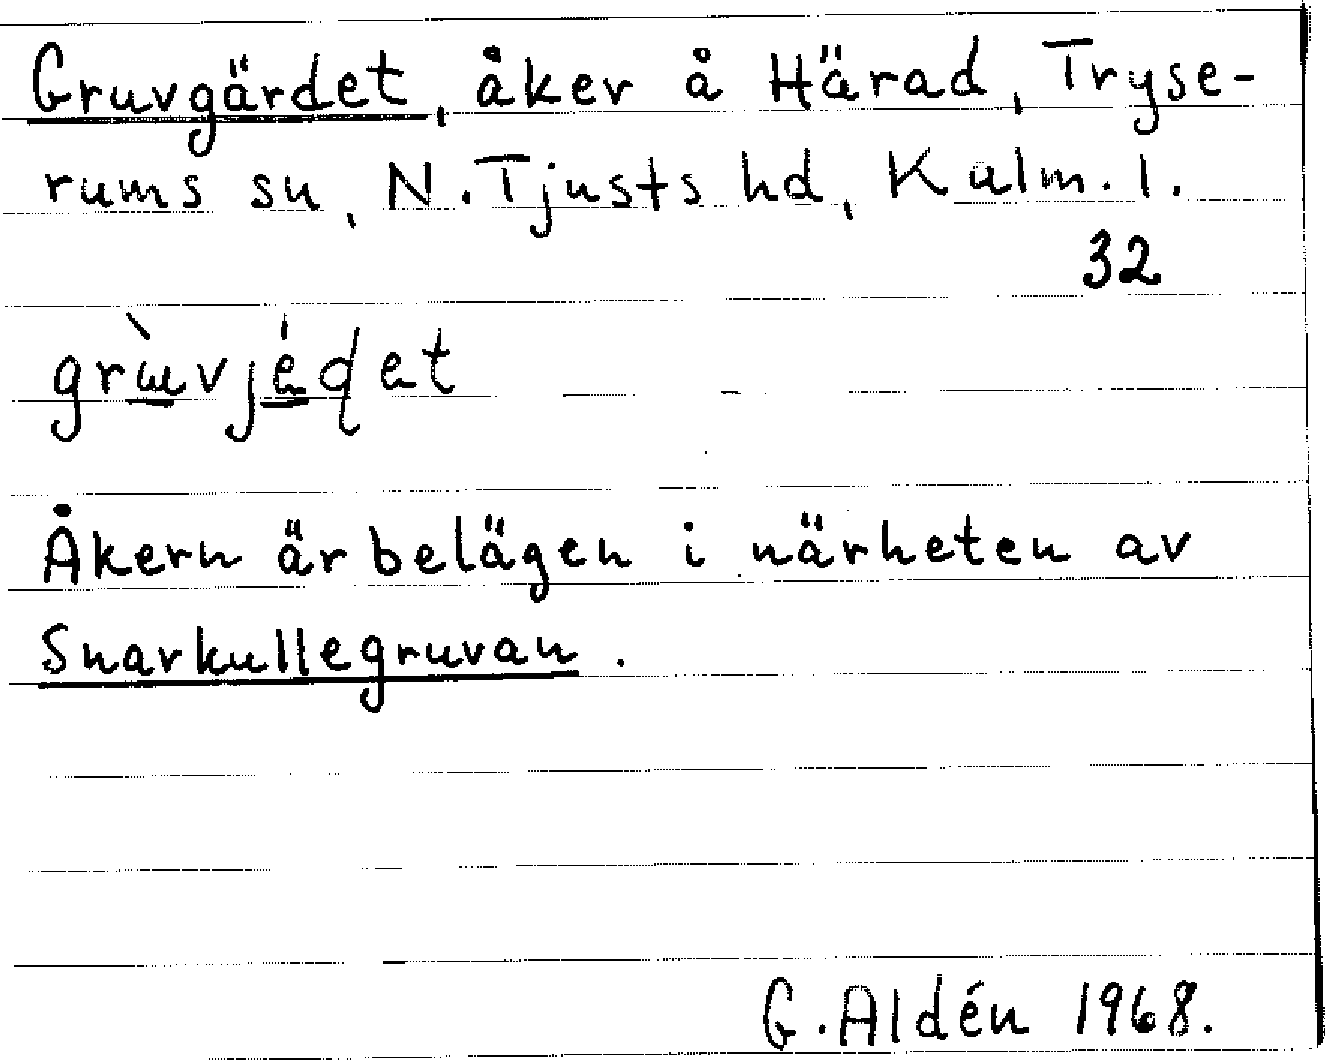 Gruvgärdet, åker å Härad, Tryse-
rums sn, N. Tjusts hd, Kalm. l.
32
Åkern är belägen i närheten av
Snarkullegruvan.
G. Aldén 1968.